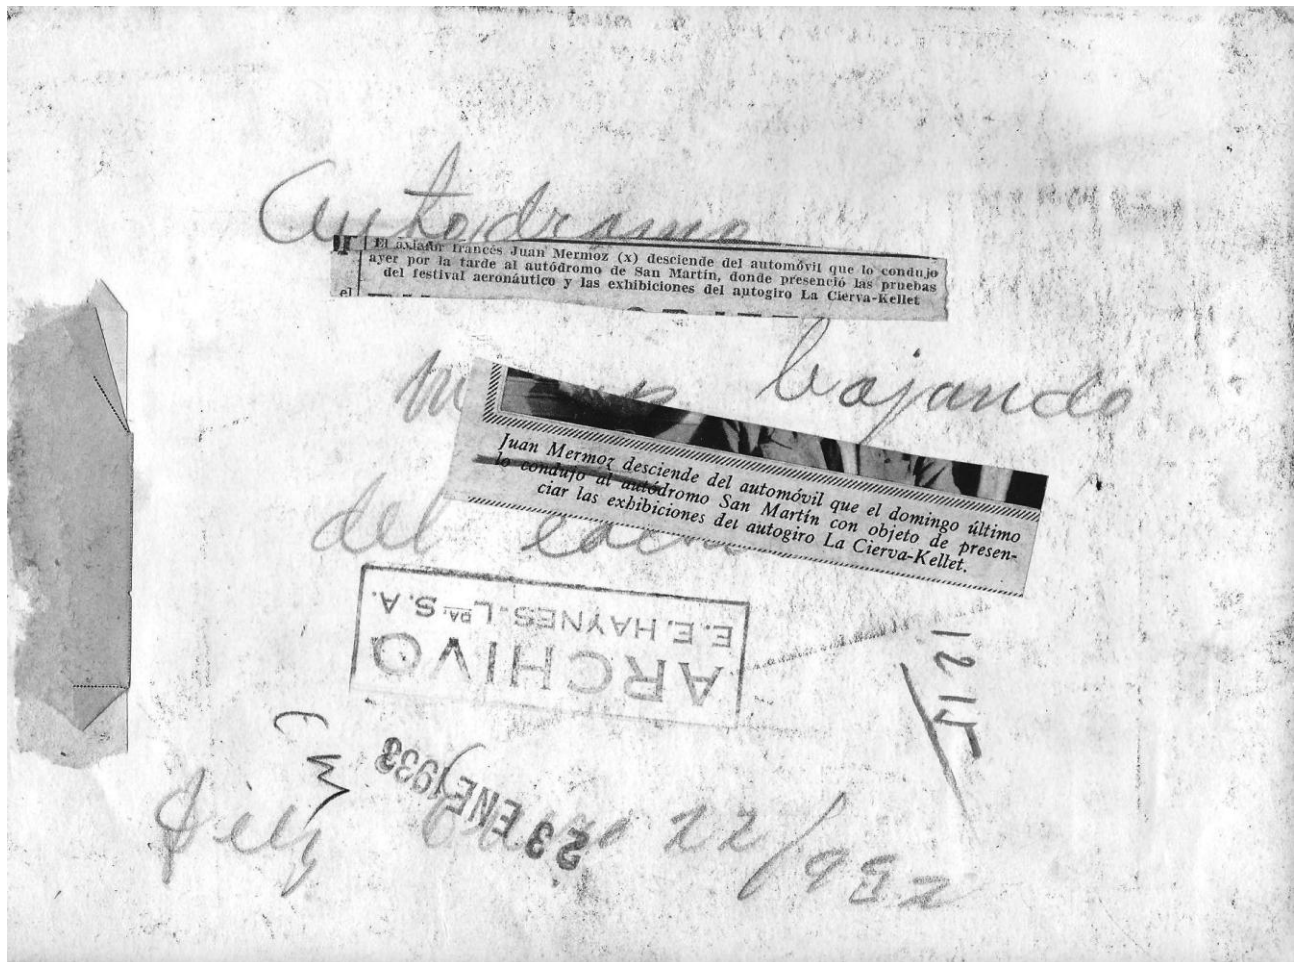 Autodromo
El aviador francés Juan Mermoz (x) desciende del automóvil que lo condujo
ayer por la tarde al autódromo de San Martín, donde presenció las pruebas
del festival aeronáutico y las exhibiciones del autogiro La Cierva-Kellet
el
bajando
Juan Mermoz desciende del automóvil que el domingo último
lo condujo al autódromo San Martín con objeto de presen-
ciar las exhibiciones del autogiro La Cierva-Kellet.
del
ARCHIVO
E. E. HAYNES. LDA S.A.
12 15
23 ENE 1933
22/932